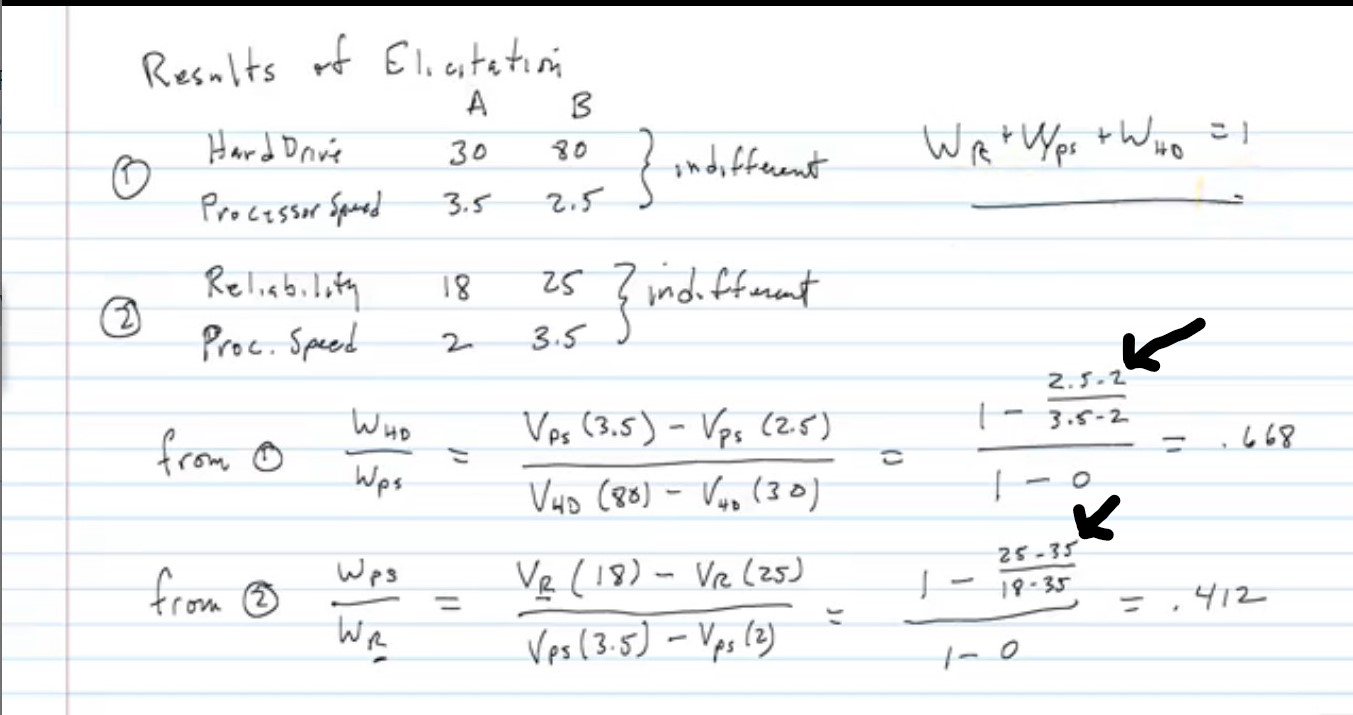 Results of Elicitation
A B
① Hard Drive 30 80 } indifferent
Processor Speed 3.5 2.5
W_R + W_PS + W_HD = 1
② Reliability 18 25 } indifferent
Proc. Speed 2 3.5
from ① W_HD / W_PS = (V_PS (3.5) - V_PS (2.5)) / (V_HD (80) - V_HD (30)) = (1 - (2.5-2)/(3.5-2)) / (1 - 0) = .668
from ② W_PS / W_R = (V_R (18) - V_R (25)) / (V_PS (3.5) - V_PS (2)) = (1 - (25-35)/(18-35)) / (1 - 0) = .412